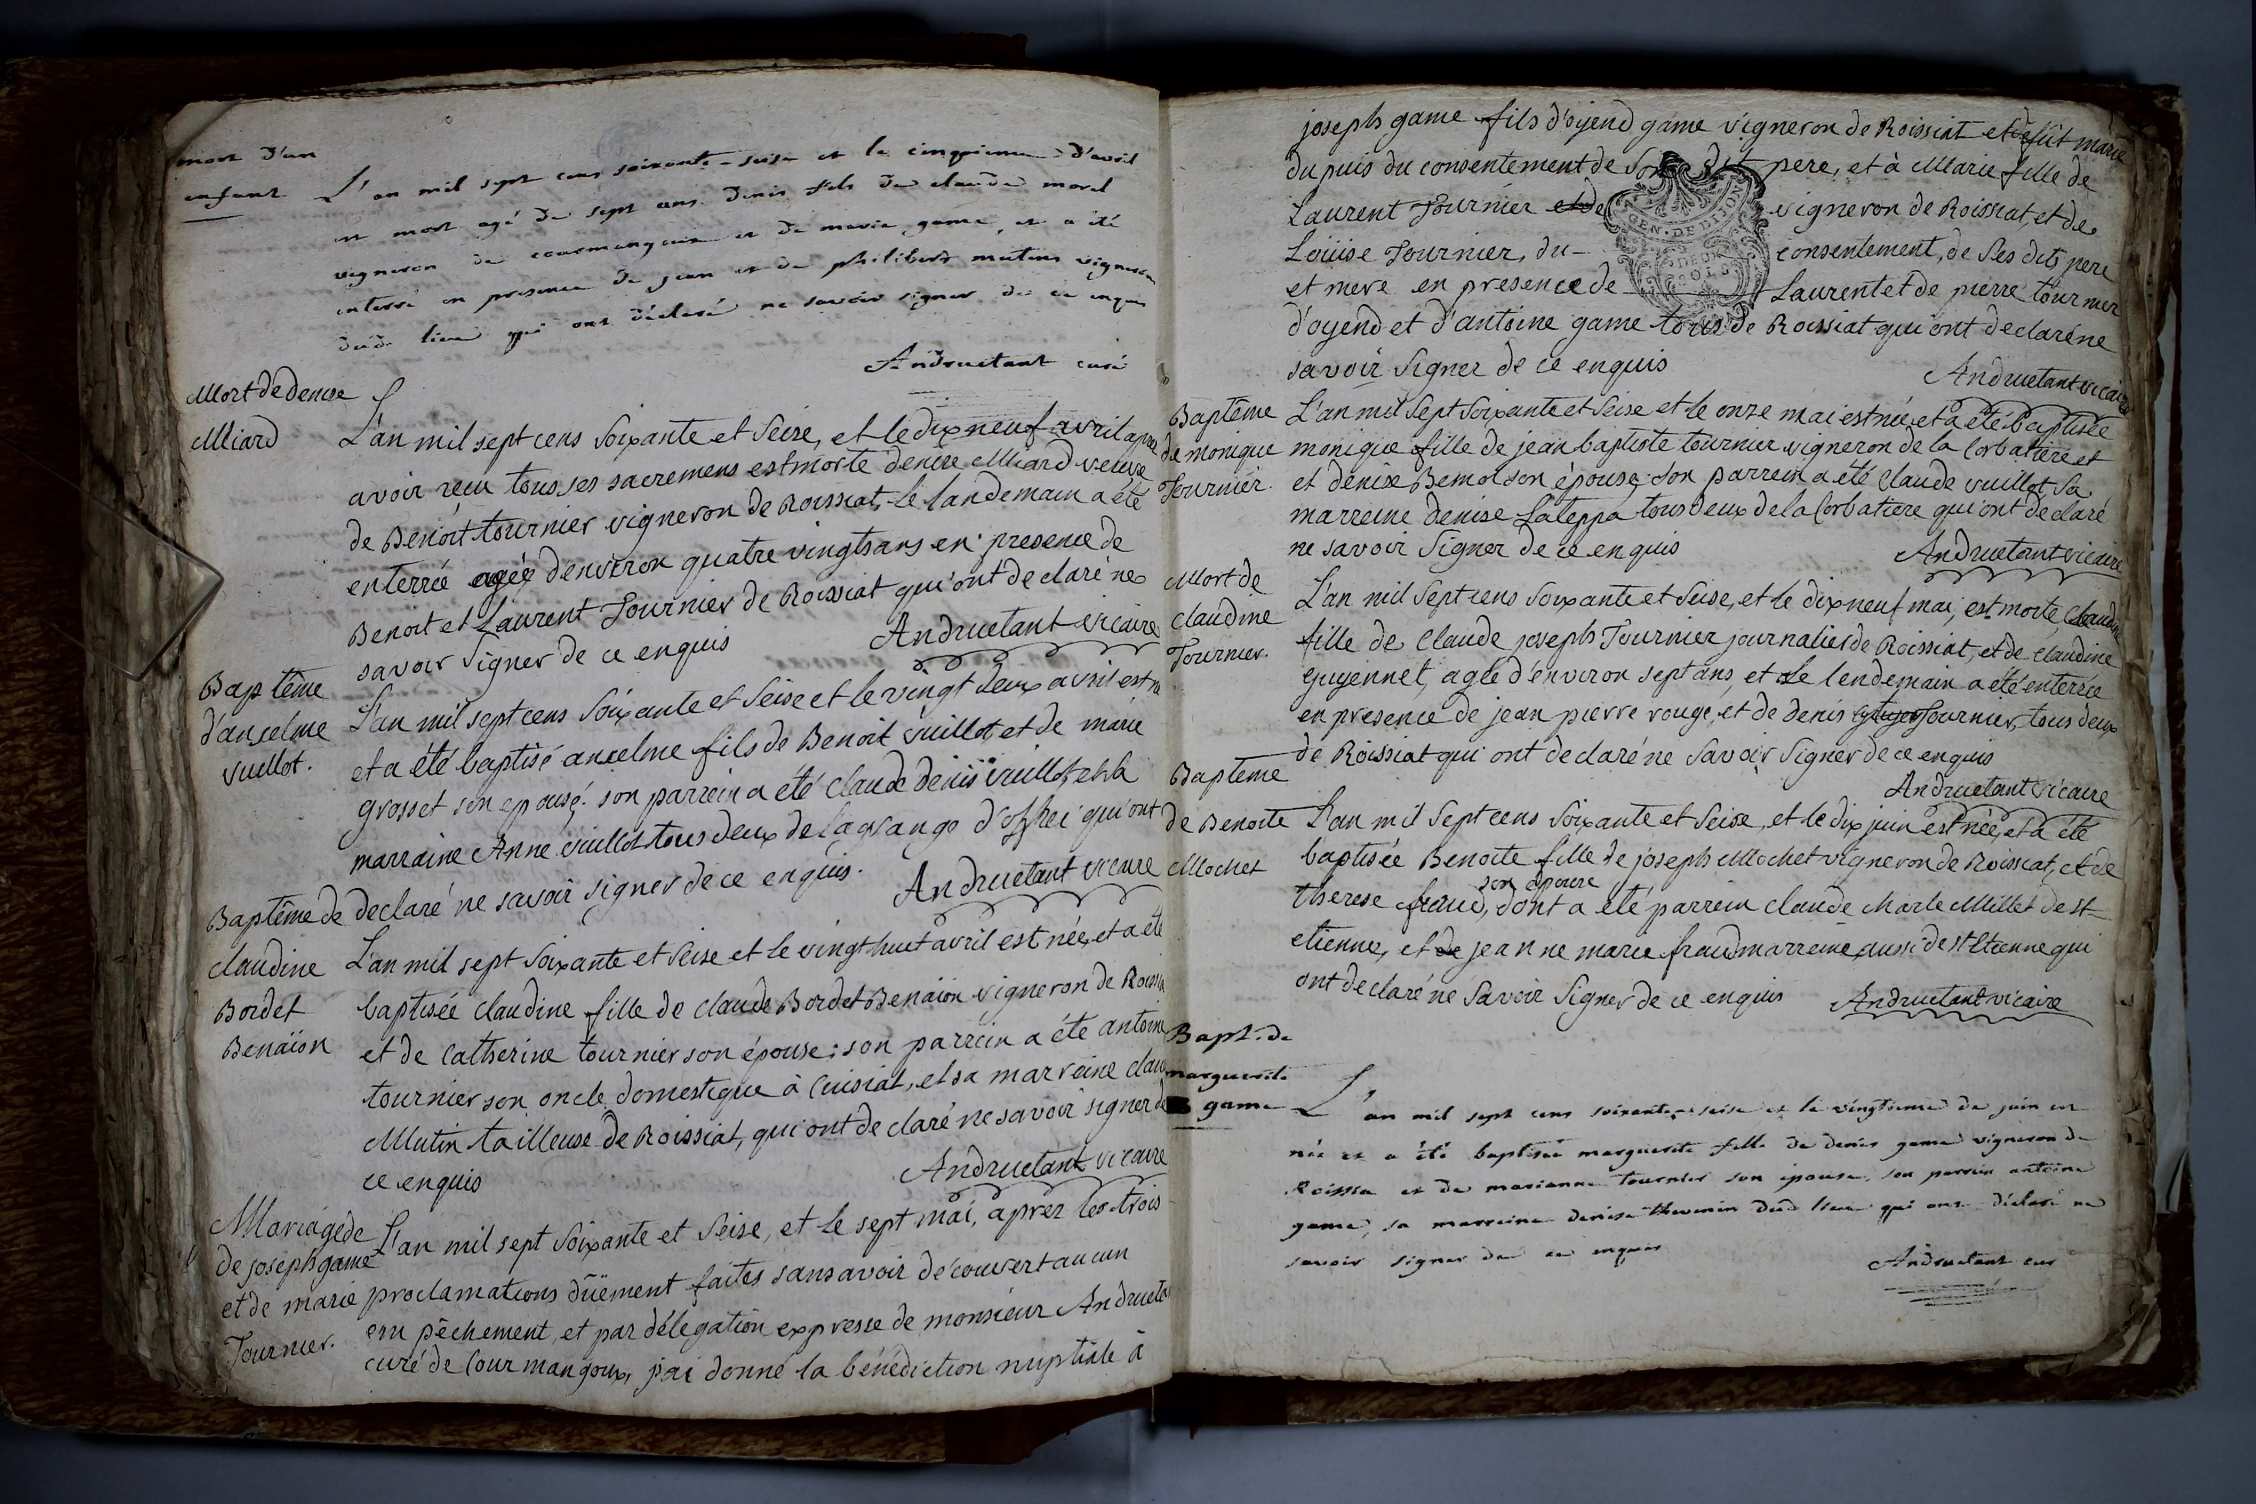 mort d'un
enfant
L'an mil sept cens soixante-seise et le cinquieme d'avril
est mort agé de sept ans denis fils de claude morel
vigneron de courmangoux et de marie game, et a été
enterré en presence de jean et de philibert mutins vignerons
dud. lieu qui ont déclaré ne savoir signer de ce enquis
Andruetant curé
Mort de denise
Miard
L'an mil sept cens soixante et seize, et le dix neuf avril apres
avoir reçu tous ses sacremens est morte denise Miard veuve
de Benoit tournier vigneron de Roissiat, le landemain a été
enterrée agée d'environ quatre vingts ans en presence de
Benoit et Laurent Tournier de Roissiat qui ont declaré ne
savoir signer de ce enquis
Andruetant vicaire
Baptême
d'anselme
vuillot.
L'an mil sept cens soixante et seise et le vingt deux avril est né
et a été baptisé ancelme fils de Benoit vuillot et de marie
grosset son epouse. son parrein a été claude denis vuillot, et la
marraine Anne vuillot tous deux de la grange d'offhei qui ont
declaré ne savoir signer de ce enquis.
Andruetant vicaire
Baptême de
claudine
Bordet
Benaïon
L'an mil sept soixante et seise et le vingt huit avril est née, et a été
baptisée claudine fille de claude Bordet Benaïon vigneron de Roissia
et de catherine tournier son épouse: son parrein a été antoine
tournier son oncle domestique à Cuisiat, et sa marreine clau
Mutin tailleuse de Roissiat, qui ont declaré ne savoir signer de
ce enquis
Andruetant vicaire
Mariage de
de joseph game
et de marie
Tournier.
L'an mil sept soixante et seise, et le sept mai, aprez les trois
proclamations dûement faites sans avoir decouvert aucun
empêchement, et par délegation expresse de monsieur Andrueta
curé de Courmangoux, j'ai donné la bénédiction nuptiale à
joseph game fils d'oyend game vigneron de Roissiat et defût marie
dupuis du consentement de son dit pere, et à Marie fille de
Laurent Tournier et de vigneron de Roissiat, et de
Loüise Tournier, du - consentement, de ses dits pere
et mere en presence de Laurent et de pierre tournier
d'oyend et d'antoine game tous de Roissiat qui ont declaré ne
savoir signer de ce enquis
Andruetant vicaire
GEN. DE DIJON
Baptême
de monique
Tournier.
L'an mil sept soixante et seise et le onze mai est née, et a été baptisée
monique fille de jean baptiste tournier vigneron de la Corbatiere et
et denise Bemol son épouse son parrein a été claude vuillot, sa
marreine denise Lateppa tous deux de la Corbatiere qui ont declaré
ne savoir signer de ce enquis
Andruetant vicaire
Mort de
claudine
Tournier.
L'an mil sept cens soixante et seise, et le dix neuf mai, est morte, claudine
fille de claude joseph Tournier journalier de Roissiat, et de claudine
guyennet, agée d'environ sept ans, et le lendemain a été enterrée
en presence de jean pierre rouge, et de denis Tournier, tous deux
de Roissiat qui ont declaré ne savoir signer de ce enquis
Andruetant vicaire
Baptême
de Benoite
Mochet
L'an mil sept cens soixante et seise, et le dix juin est née, et a été
baptisée Benoite fille de joseph Mochet vigneron de Roissiat, et de
therese fraud, son epouse dont a été parrein claude Marle Millet de st
etienne, et de jeanne marie fraud marreine, aussi de st Etienne qui
ont declaré ne savoir signer de ce enquis
Andruetant vicaire
Bapt. de
marguerite
game
L'an mil sept cens soixante-seise et le vingtieme de juin est
née et a été baptisée marguerite fille de denis game vigneron de
Roissia et de marianne tournier son épouse, son parrein antoine
game, sa marreine denise thevenin dud. lieu qui ont déclaré ne
savoir signer de ce enquis
Andruetant cur